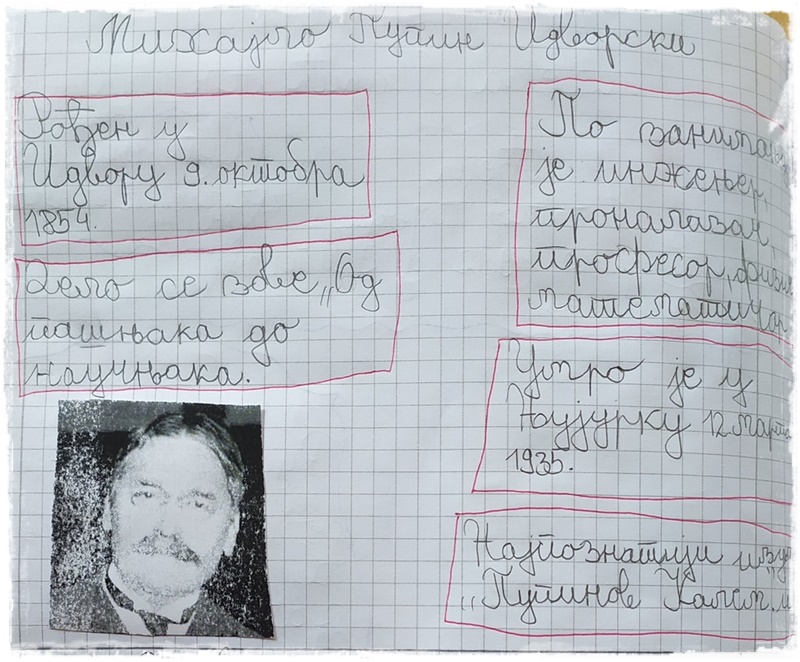 Михајло Пупин Идворски
Рођен у
Идвору 9. октобра
1854.
Дело се зове „Од
пашњака до
научњака.
По
је инжењер,
проналазач,
професор,
математичар
Умро је у
Њујурку 12. марта
1935.
Најпознатији
„Пупинов Калем."